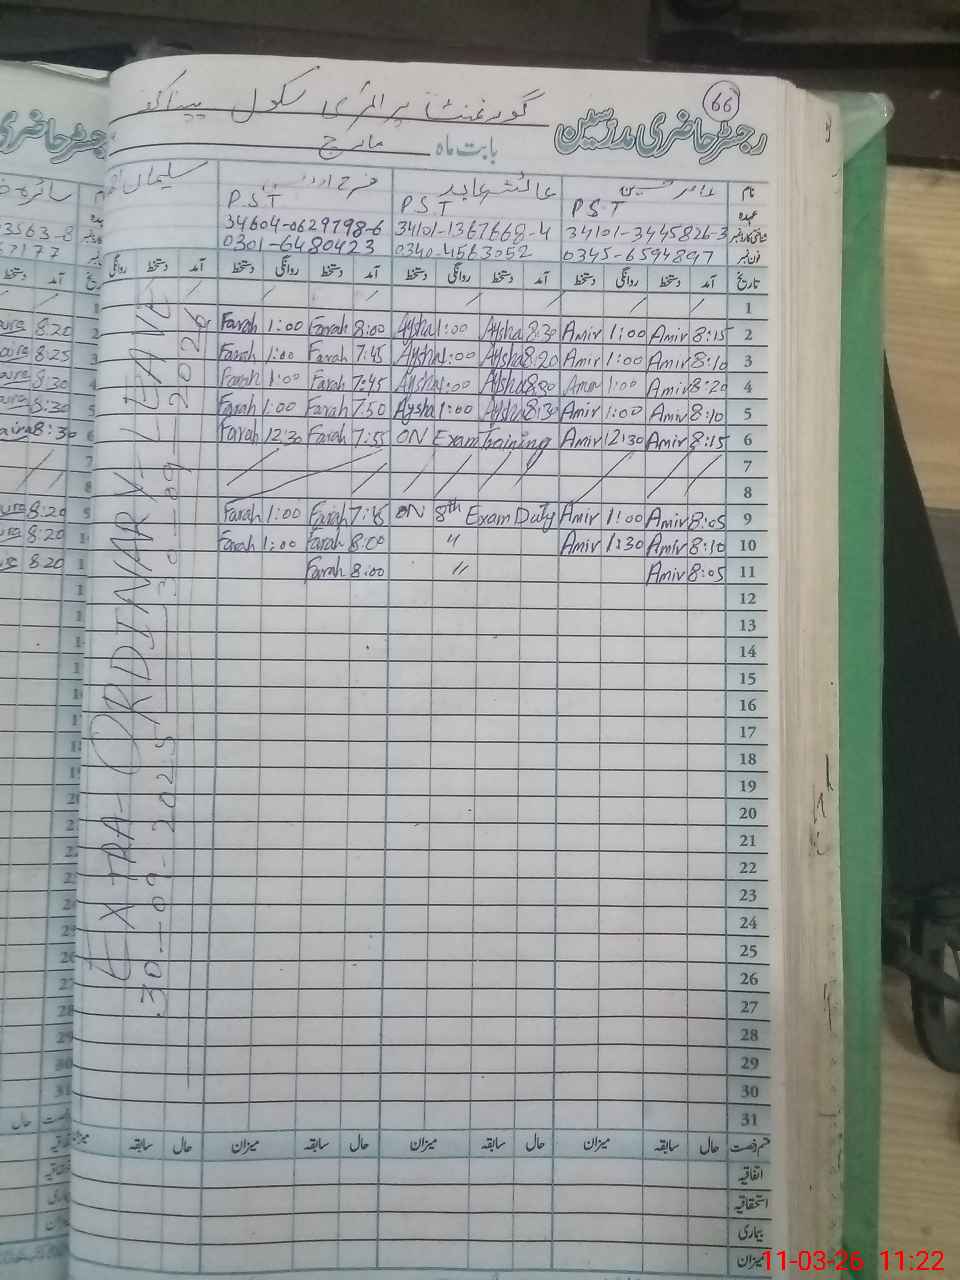 66
گورنمنٹ پرائمری سکول
رجسٹر حاضری مدرسین
بابت ماہ مارچ
نام عامر حسین عائشہ عابد فرح سلیمان
عہدہ P.S.T P.S.T P.S.T
34101-3445826-3 34101-1367668-4 34604-0629798-6
فون نمبر 0345-6594897 0340-4563052 0301-6480423
تاریخ آمد دستخط روانگی دستخط آمد دستخط روانگی دستخط آمد دستخط روانگی دستخط آمد دستخط روانگی
1
Farah 1:00 Farah 8:00 Aysha 1:00 Aysha 8:30 Amir 1:00 Amir 8:15 2
Farah 1:00 Farah 7:45 Aysha 1:00 Aysha 8:20 Amir 1:00 Amir 8:10 3
Farah 1:00 Farah 7:45 Aysha 1:00 Aysha Amir 1:00 Amir 8:20 4
Farah 1:00 Farah 7:50 Aysha 1:00 Aysha 8:30 Amir 1:00 Amir 8:10 5
Farah 12:30 Farah 7:55 ON Exam Training Amir 12:30 Amir 8:15 6
7
8
Farah 1:00 Farah 7:45 ON 8th Exam Duty Amir 1:00 Amir 8:05 9
Farah 1:00 Farah 8:00 " Amir 1:30 Amir 8:10 10
Farah 8:00 " Amir 8:05 11
12
13
14
15
16
17
18
19
20
21
22
23
24
25
26
27
28
29
30
31
EXTRA-ORDINARY LEAVE
30-09-2025 30-09-2026
حال سابقہ میزان حال سابقہ میزان حال سابقہ میزان حال سابقہ میزان
اتفاقیہ
استحقاقیہ
بیماری
میزان
8:20
8:25
8:30
8:30
8:30
8:20
8:20
8:20
11-03-26 11:22